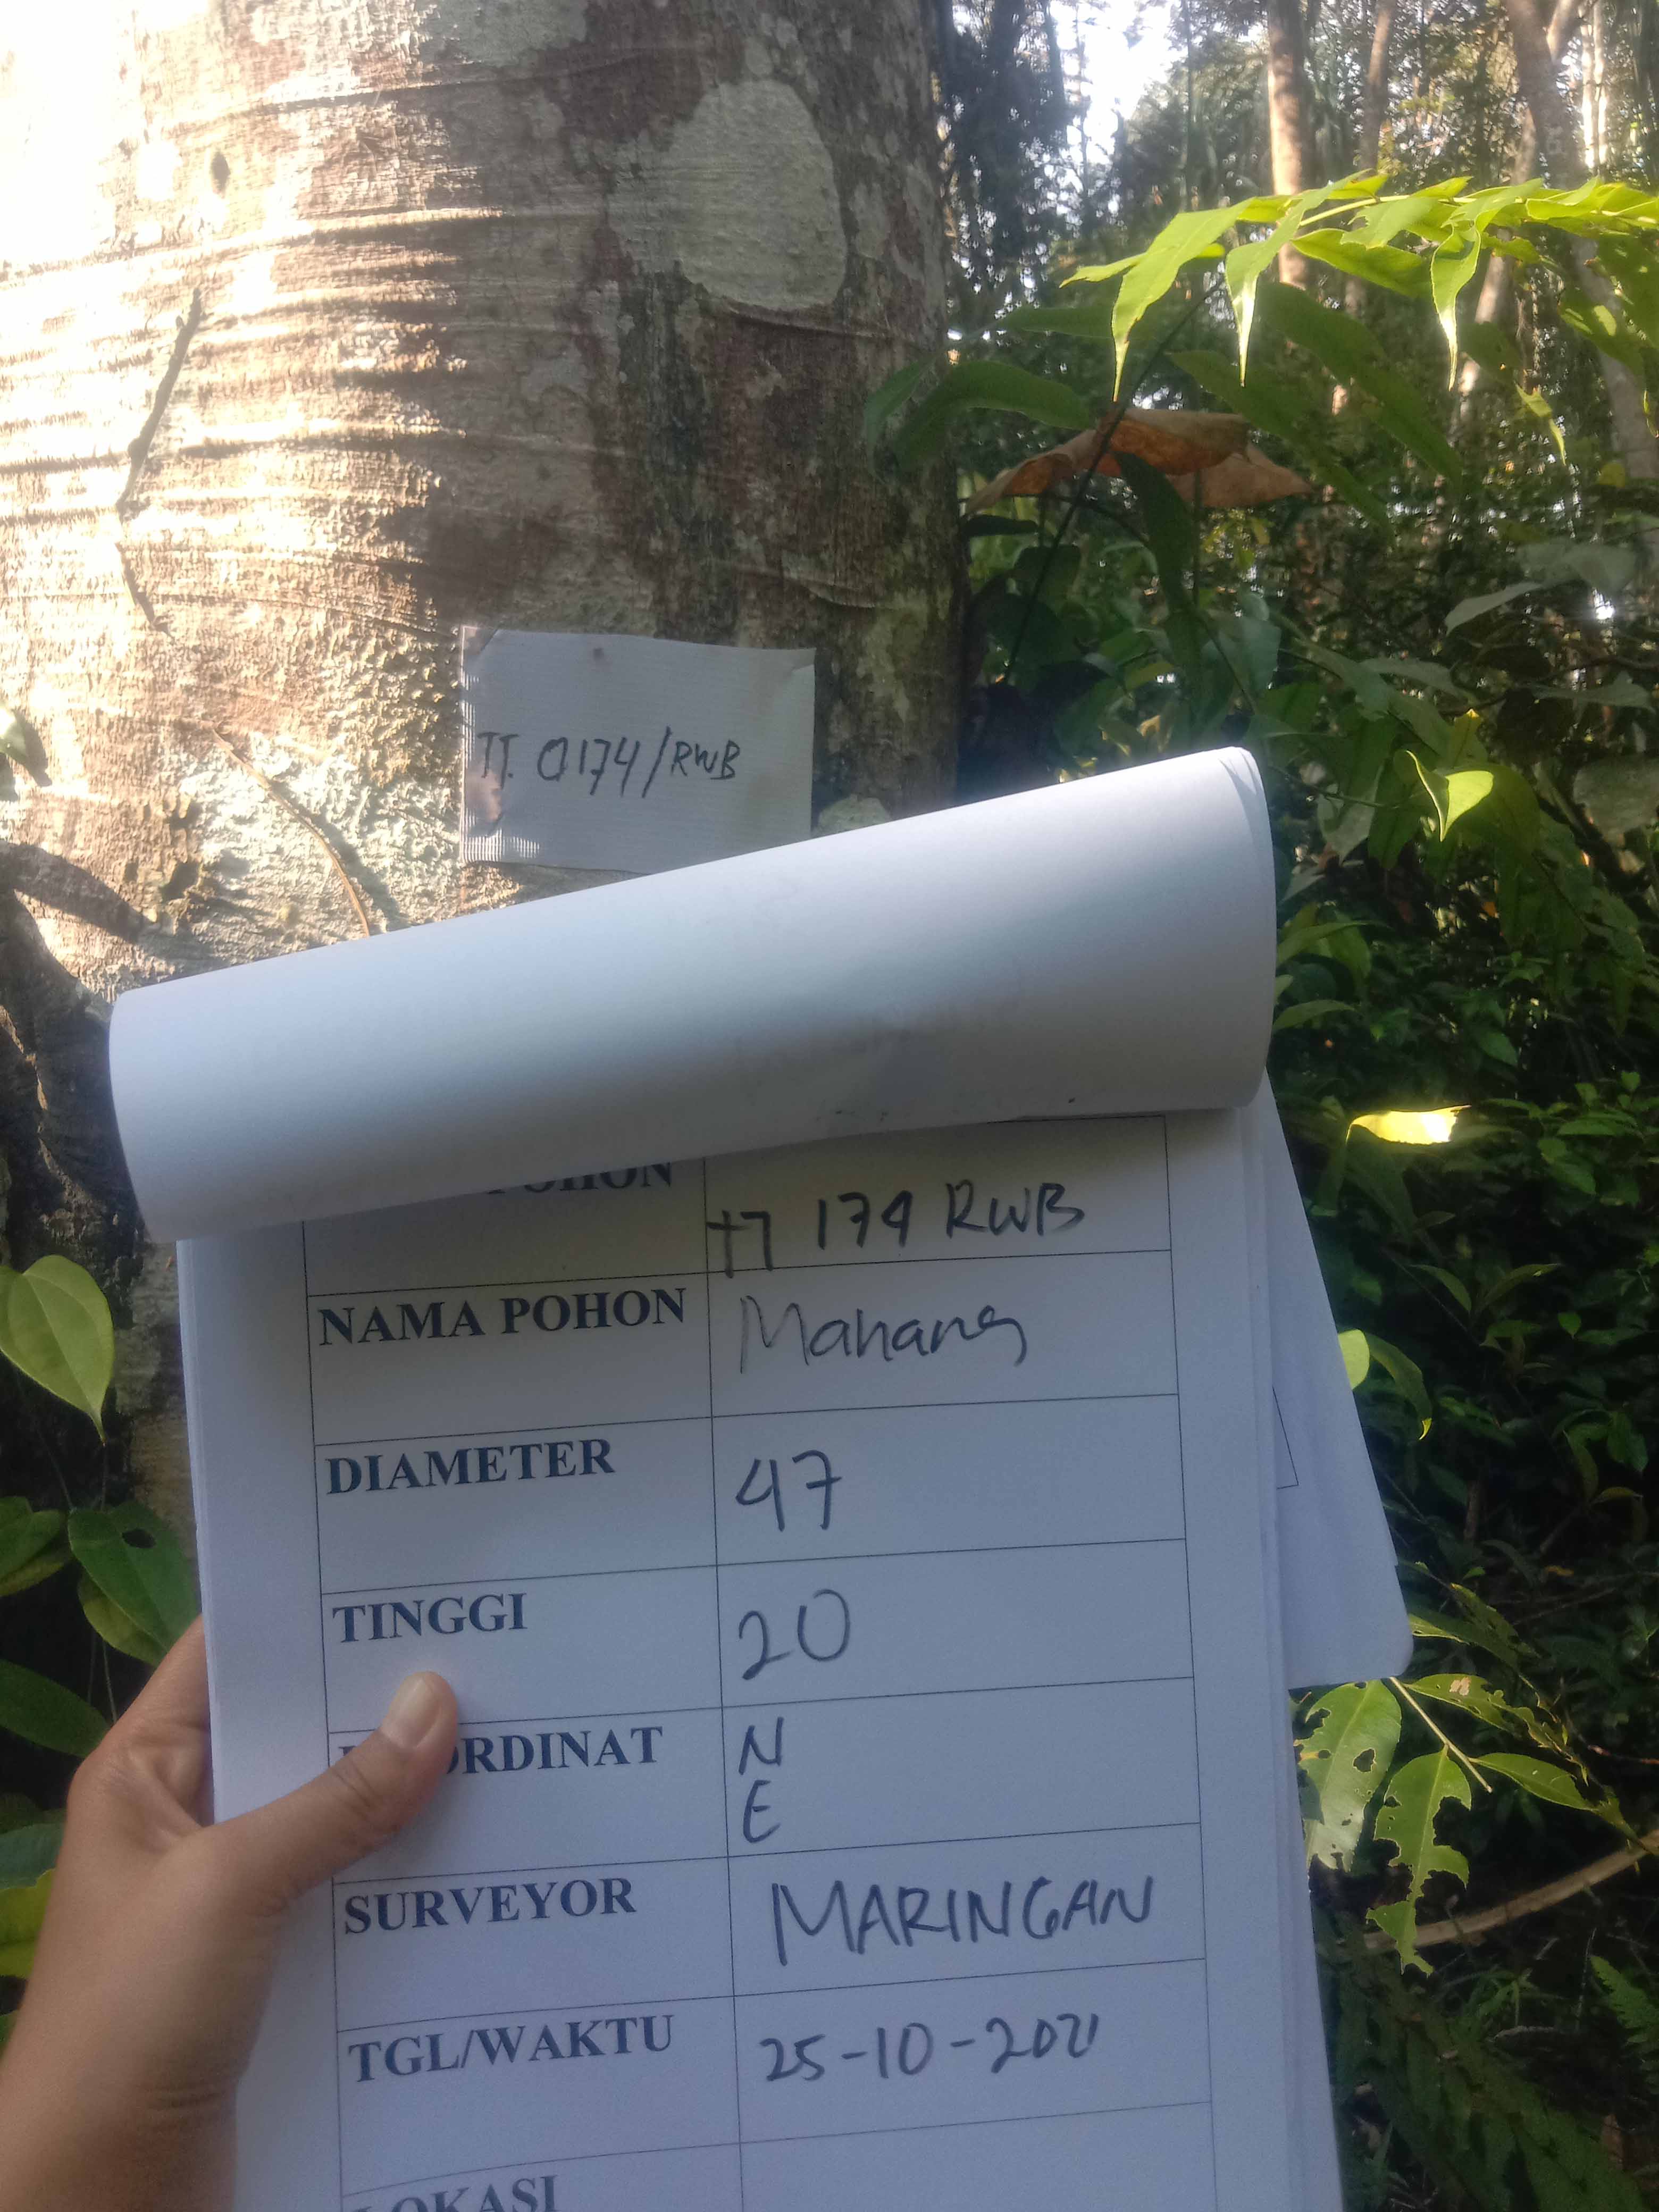 TT. 0174/RWB
POHON
TT 174 RWB
NAMA POHON
Mahang
DIAMETER
47
TINGGI
20
KOORDINAT
N
E
SURVEYOR
MARINGAN
TGL/WAKTU
25-10-2021
LOKASI